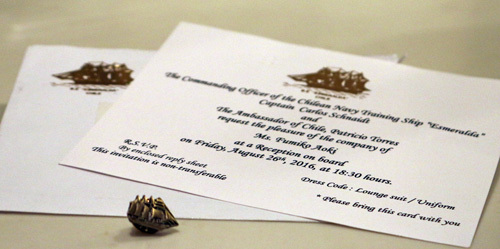 The Commanding Officer of the Chilean Navy Training Ship "Esmeralda"
Captain Carlos Schnaidt
and
The Ambassador of Chile, Patricio Torres
request the pleasure of the company of
Ms. Fumiko Aoki
at a Reception on board
on Friday, August 26th, 2016, at 18:30 hours.
R.S.V.P.
By enclosed reply sheet
This invitation is non-transferable
Dress Code : Lounge suit / Uniform
* Please bring this card with you
CHILE